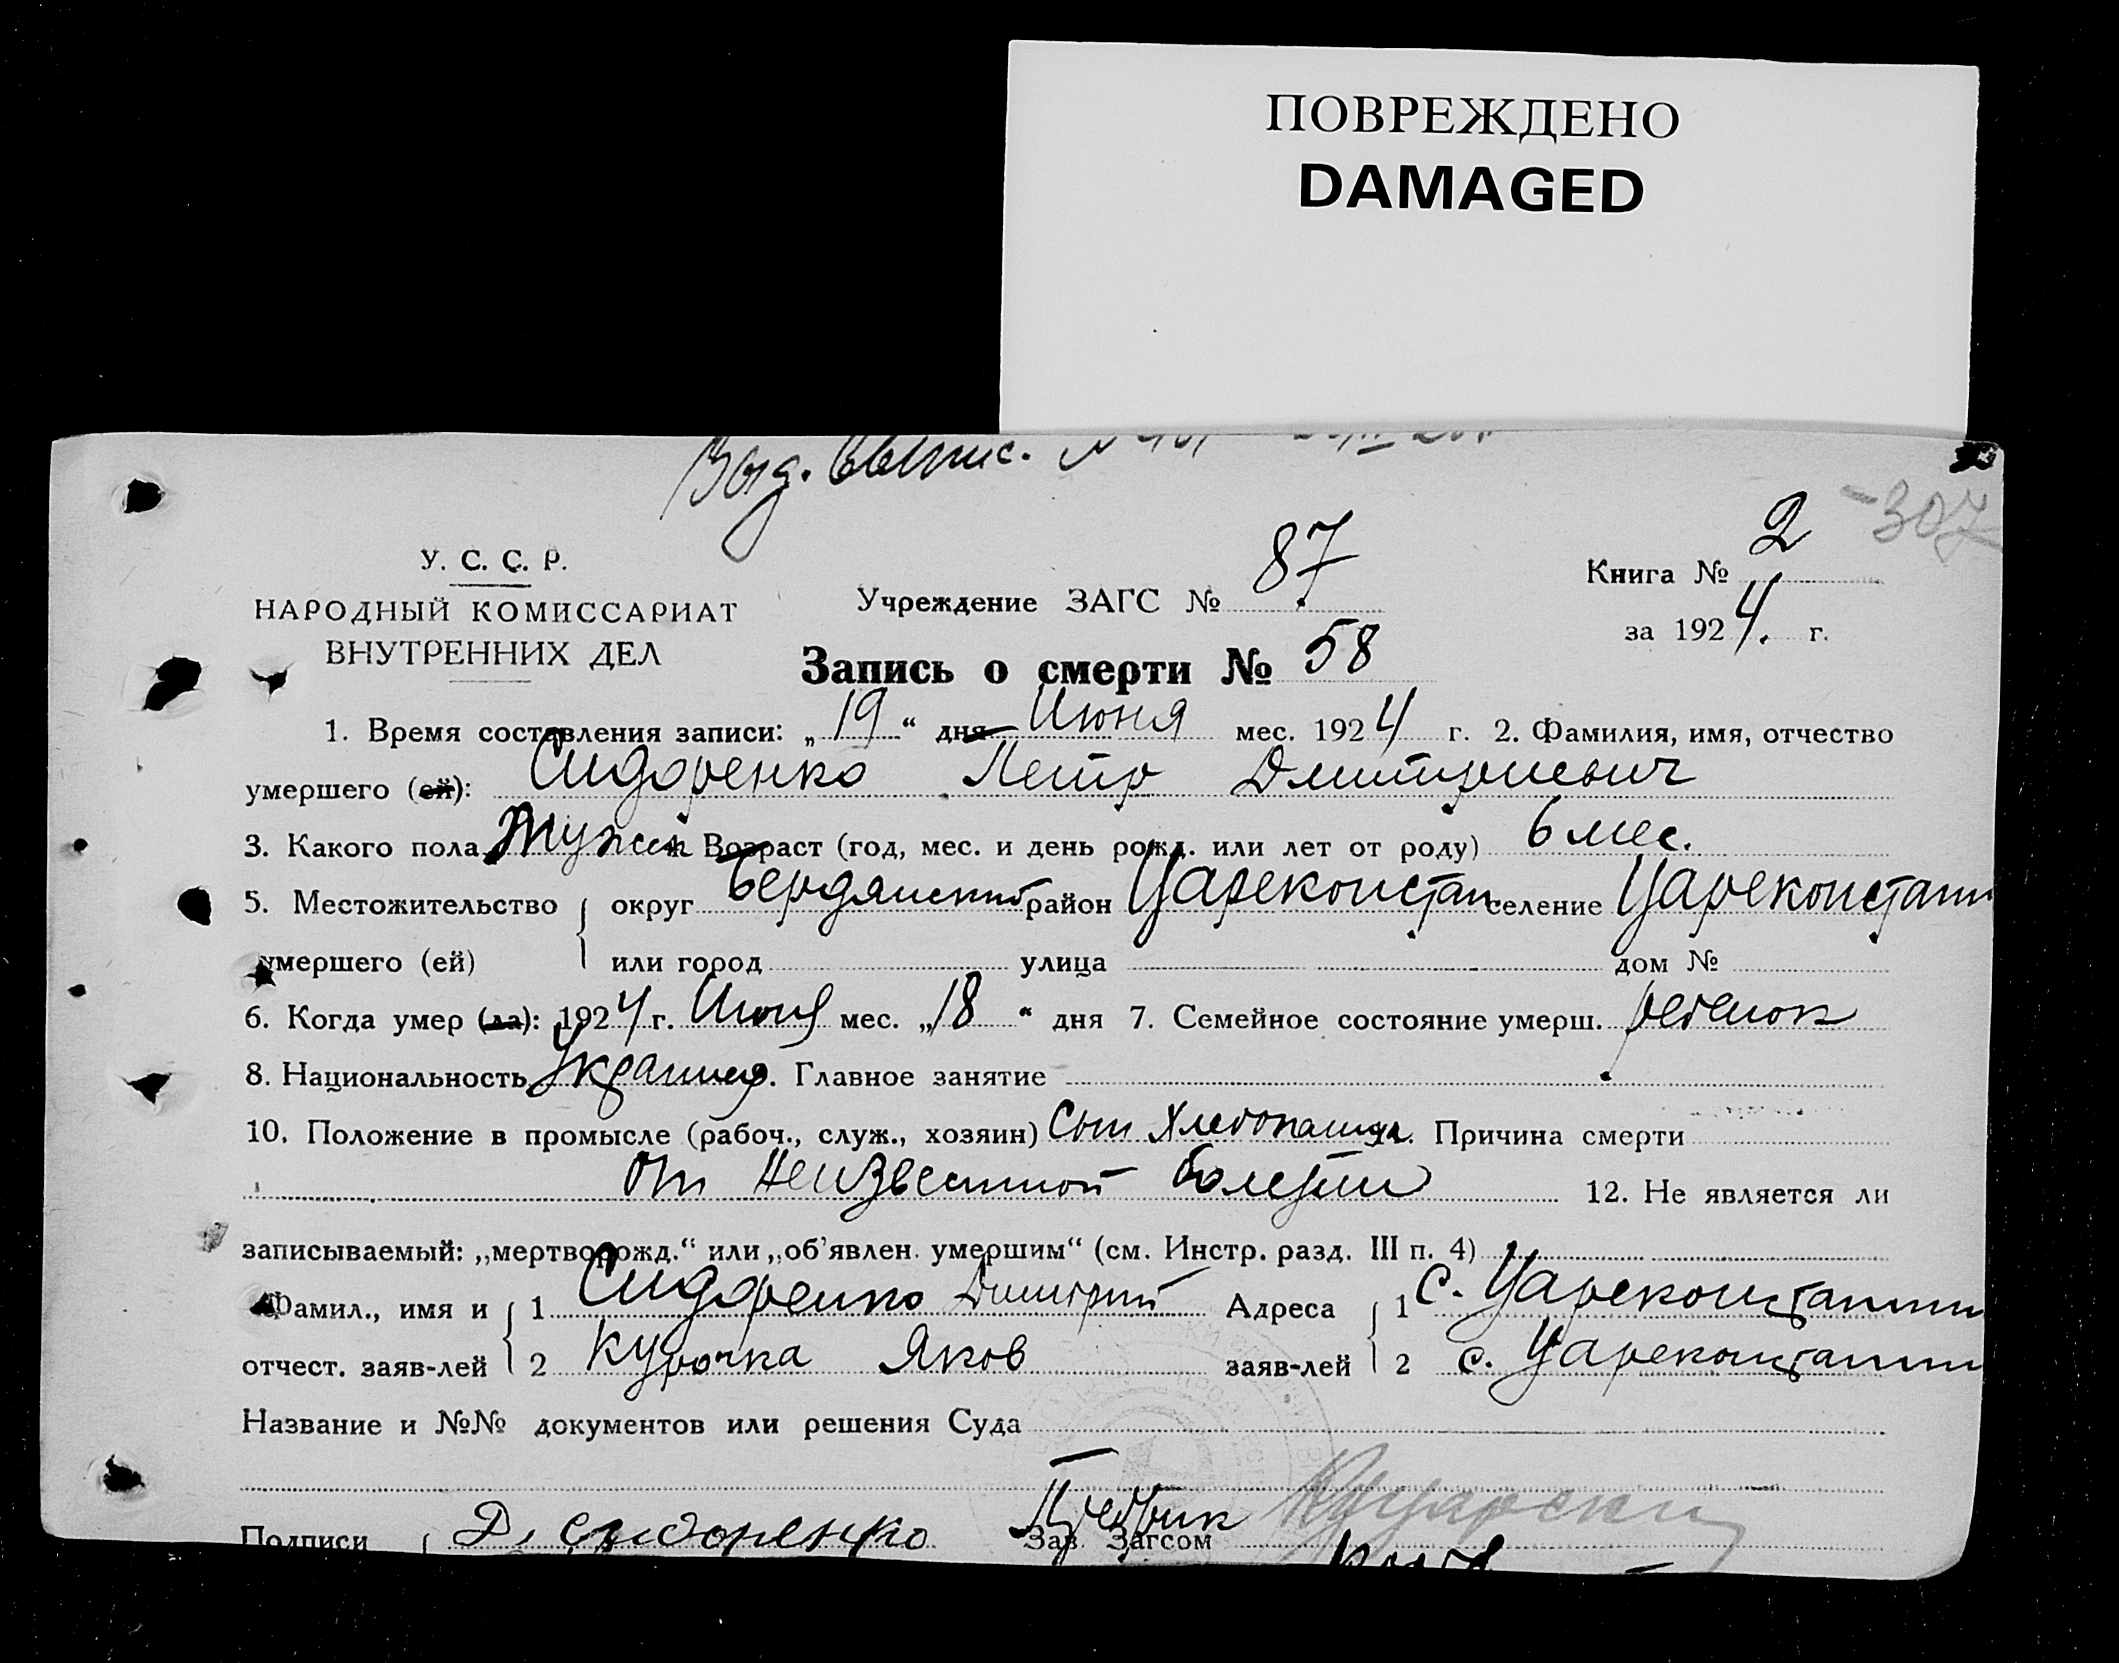 ПОВРЕЖДЕНО
DAMAGED
Выд. выпис. №
307
У. С. С. Р.
НАРОДНЫЙ КОМИССАРИАТ
ВНУТРЕННИХ ДЕЛ
Учреждение ЗАГС № 87
Книга № 2
за 1924. г.
Запись о смерти № 58
1. Время составления записи: „19“ дня Июня мес. 1924 г. 2. Фамилия, имя, отчество
умершего (ей): Сидоренко Петр Дмитриевич
3. Какого пола Мужск Возраст (год, мес. и день рожд. или лет от роду) 6 мес.
5. Местожительство округ Бердянский район Цареконстан селение Цареконстант
умершего (ей) или город улица дом №
6. Когда умер (ла): 1924 г. Июня мес. „18“ дня 7. Семейное состояние умерш. ребенок
8. Национальность Украинец. Главное занятие
10. Положение в промысле (рабоч., служ., хозяин) Сын Хлебопашца. Причина смерти
От Неизвестной болезни 12. Не является ли
записываемый: „мертворожд.“ или „об'явлен. умершим“ (см. Инстр. разд. III п. 4)
Фамил., имя и 1 Сидоренко Дмитрий Адреса 1 с. Цареконстантин
отчест. заяв-лей 2 Курочка Яков заяв-лей 2 с. Цареконстантин
Название и №№ документов или решения Суда
Подписи Д. Сидоренко Зав. Загсом